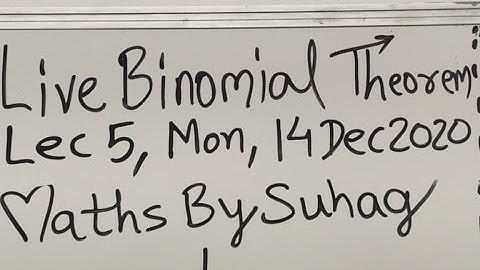 Live Binomial Theorem
Lec 5, Mon, 14 Dec 2020
Maths By Suhag